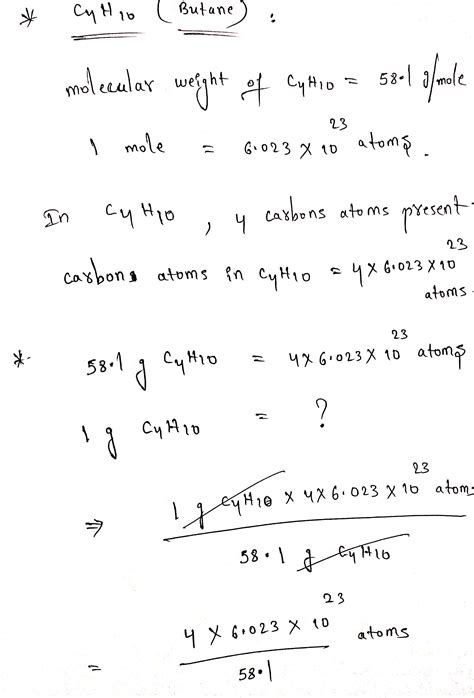 * C4H10 (Butane) :
molecular weight of C4H10 = 58.1 g/mole
1 mole = 6.023 × 10^23 atoms.
In C4H10, 4 carbons atoms present.
carbons atoms in C4H10 = 4 × 6.023 × 10^23
atoms.
*. 58.1 g C4H10 = 4 × 6.023 × 10^23 atoms
1 g C4H10 = ?
⇒ 1 g C4H10 × 4 × 6.023 × 10^23 atom.
58.1 g C4H10
= 4 × 6.023 × 10^23 atoms
58.1